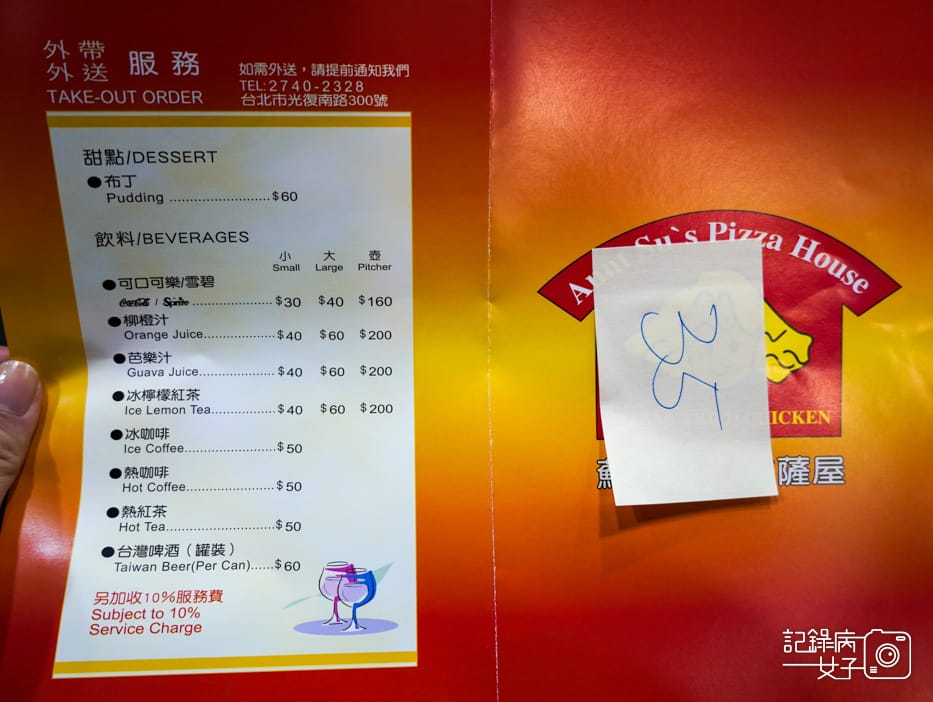 外帶
外送 服務
TAKE-OUT ORDER
如需外送，請提前通知我們
TEL:2740-2328
台北市光復南路300號
甜點/DESSERT
●布丁
Pudding ..........................$60
飲料/BEVERAGES
小 大 壺
Small Large Pitcher
●可口可樂/雪碧
Coca-Cola / Sprite ....................$30 $40 $160
●柳橙汁
Orange Juice.................$40 $60 $200
●芭樂汁
Guava Juice...................$40 $60 $200
●冰檸檬紅茶
Ice Lemon Tea................$40 $60 $200
●冰咖啡
Ice Coffee.......................$50
●熱咖啡
Hot Coffee......................$50
●熱紅茶
Hot Tea...........................$50
●台灣啤酒（罐裝）
Taiwan Beer(Per Can)......$60
另加收10%服務費
Subject to 10%
Service Charge
Su`s Pizza House
35
CHICKEN
薩屋
記錄病
女子